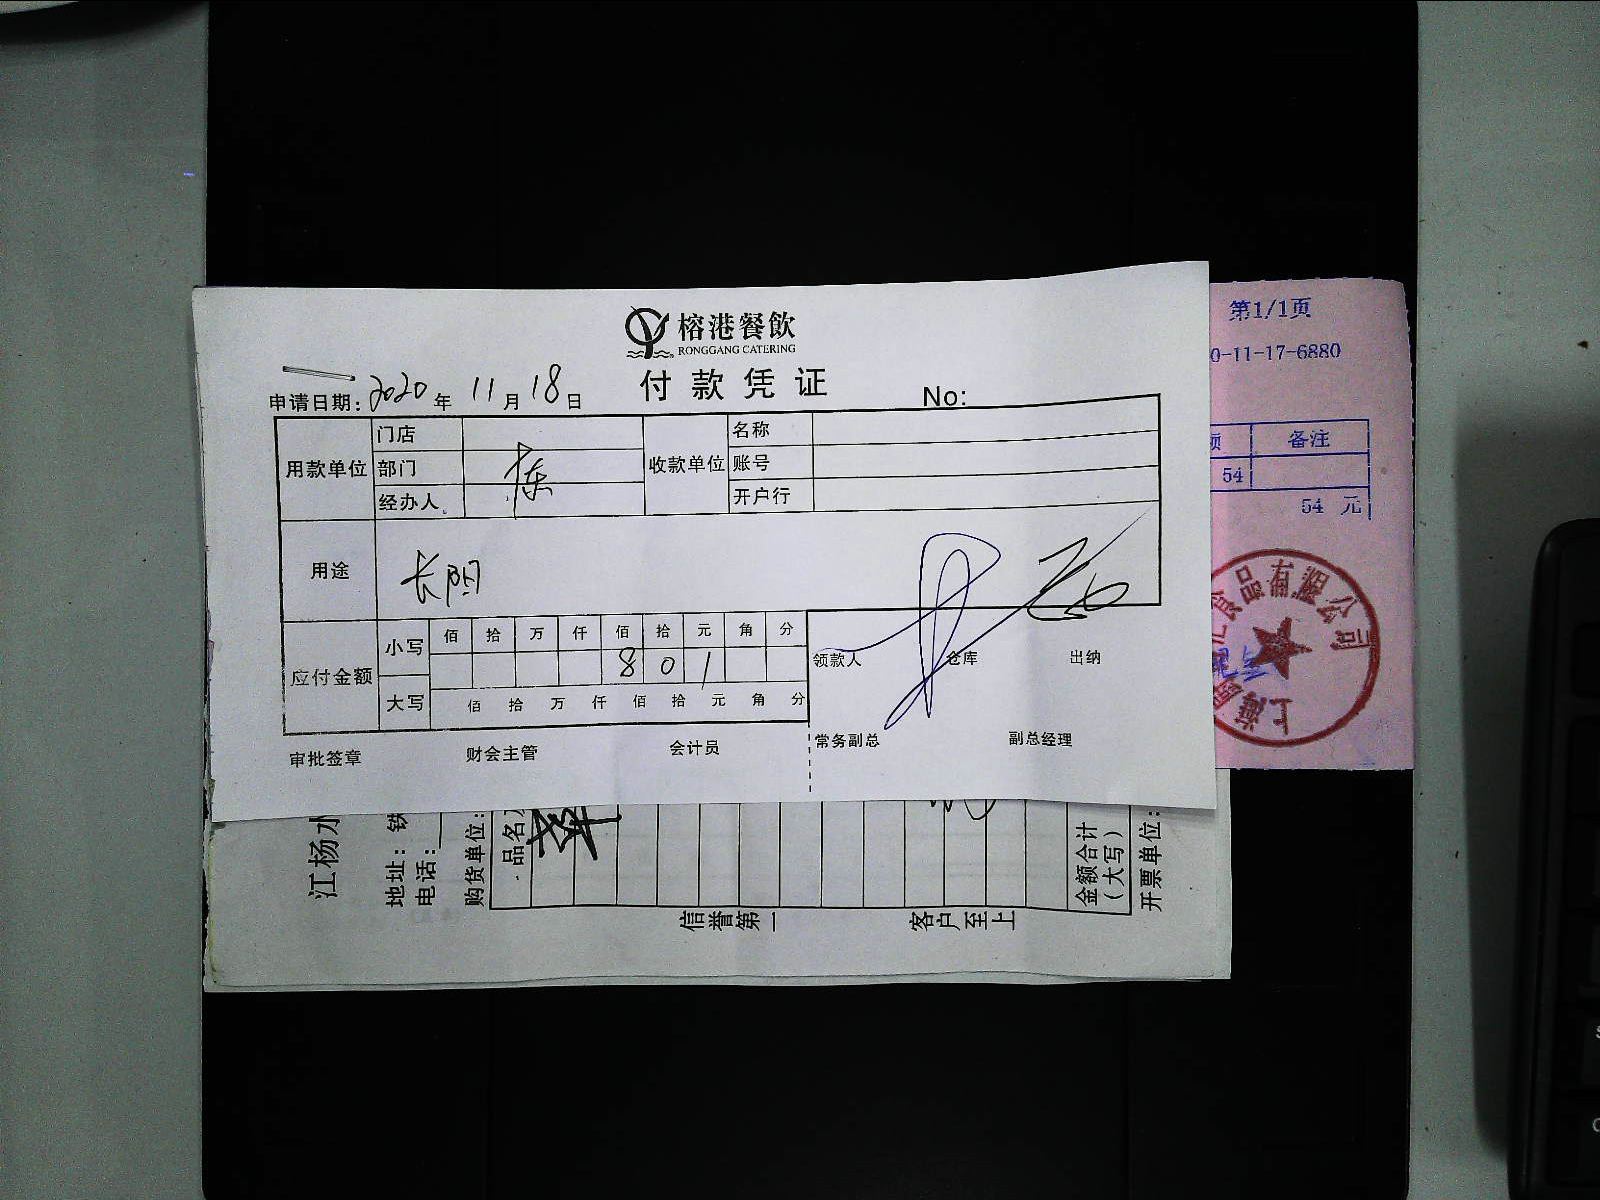 榕港餐飲
RONGGANG CATERING
付款凭证
申请日期: 2020 年 11 月 18 日
No:
用款单位 门店 收款单位 名称
部门 账号
经办人 开户行
用途 长阳
应付金额 小写 佰 拾 万 仟 佰 拾 元 角 分
8 0 1
大写 佰 拾 万 仟 佰 拾 元 角 分
领款人 仓库 出纳
审批签章 财会主管 会计员 常务副总 副总经理
第1/1页
0-11-17-6880
额 备注
54
54 元
上海
食品有限公司
江杨水
地址: 铁
电话:
购货单位:
品名
金额合计
(大写)
开票单位:
信誉第一 客户至上